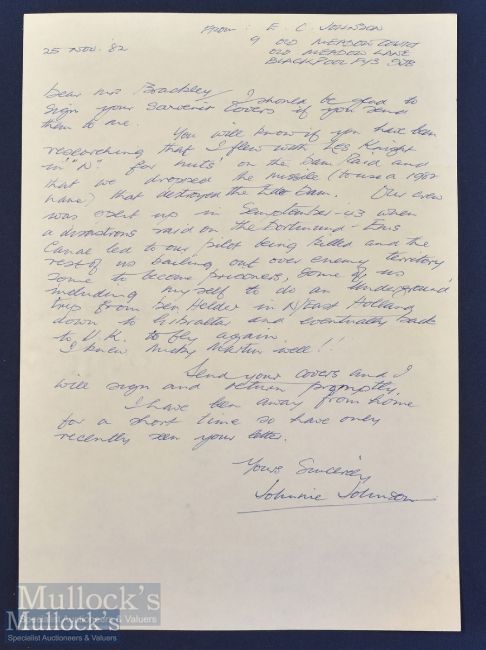 From: E. C. JOHNSON
9 OLD MEADOW COURT
25 NOV. '82
OLD MEADOW LANE
BLACKPOOL FY3
Dear Mrs Brackley, I should be glad to
sign your souvenir covers if you send
them to me.
You will know if you have been
researching that I flew with Les Knight
in "N" for nuts' on the Dam Raid and
that we dropped the missile (to use a 1982
name) that destroyed the Eder Dam. Our crew
was split up in September '43 when
a disastrous raid on the Dortmund-Ems
Canal led to our pilot being killed and the
rest of us bailing out over enemy territory
some to become prisoners, some of us
including myself to do an 'underground'
trip from Den Helder in N/East Holland
down to Gibraltar and eventually back
to U.K. to fly again.
I knew Micky Martin well!!
Send your covers and I
will sign and return promptly,
I have been away from home
for a short time so have only
recently seen your letter.
Yours Sincerely
Johnnie Johnson
Mullock's
Specialist Auctioneers & Valuers
Mullock's
Specialist Auctioneers & Valuers